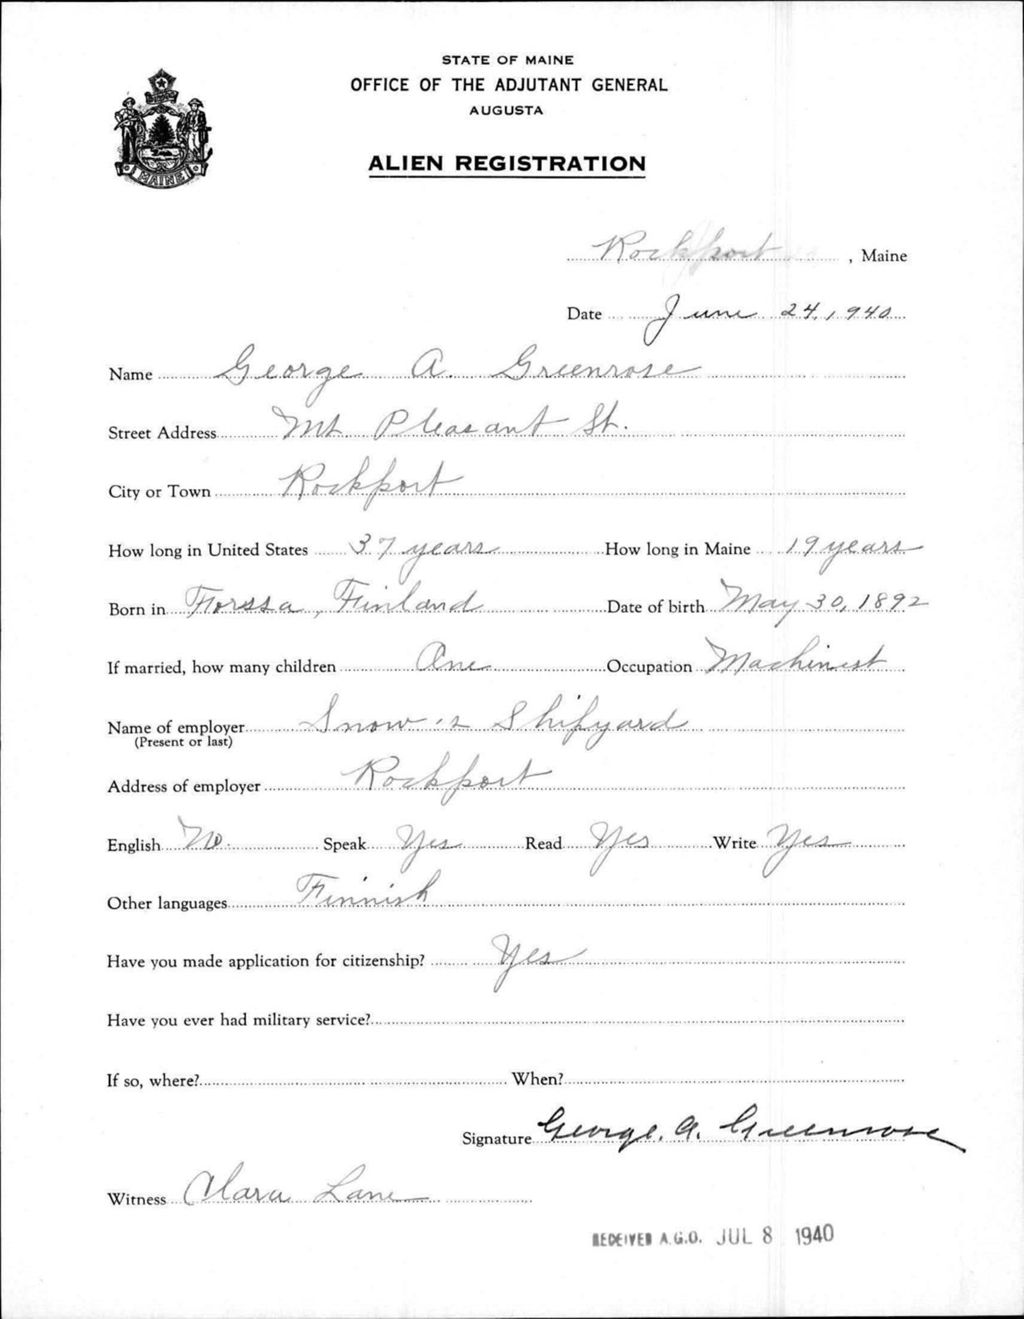 STATE OF MAINE
OFFICE OF THE ADJUTANT GENERAL
AUGUSTA
ALIEN REGISTRATION
MAINE
Rockport, Maine
Date June 24, 1940
Name George A. Greenrose
Street Address Mt Pleasant St.
City or Town Rockport
How long in United States 37 years How long in Maine 19 years
Born in Forssa, Finland Date of birth May 30, 1892
If married, how many children One Occupation Machinist
Name of employer Snow's Shipyard
(Present or last)
Address of employer Rockport
English No. Speak Yes Read Yes Write Yes
Other languages Finnish
Have you made application for citizenship? Yes
Have you ever had military service?
If so, where? When?
Signature George. A. Greenrose
Witness Clara Lane
RECEIVED A.G.O. JUL 8 1940